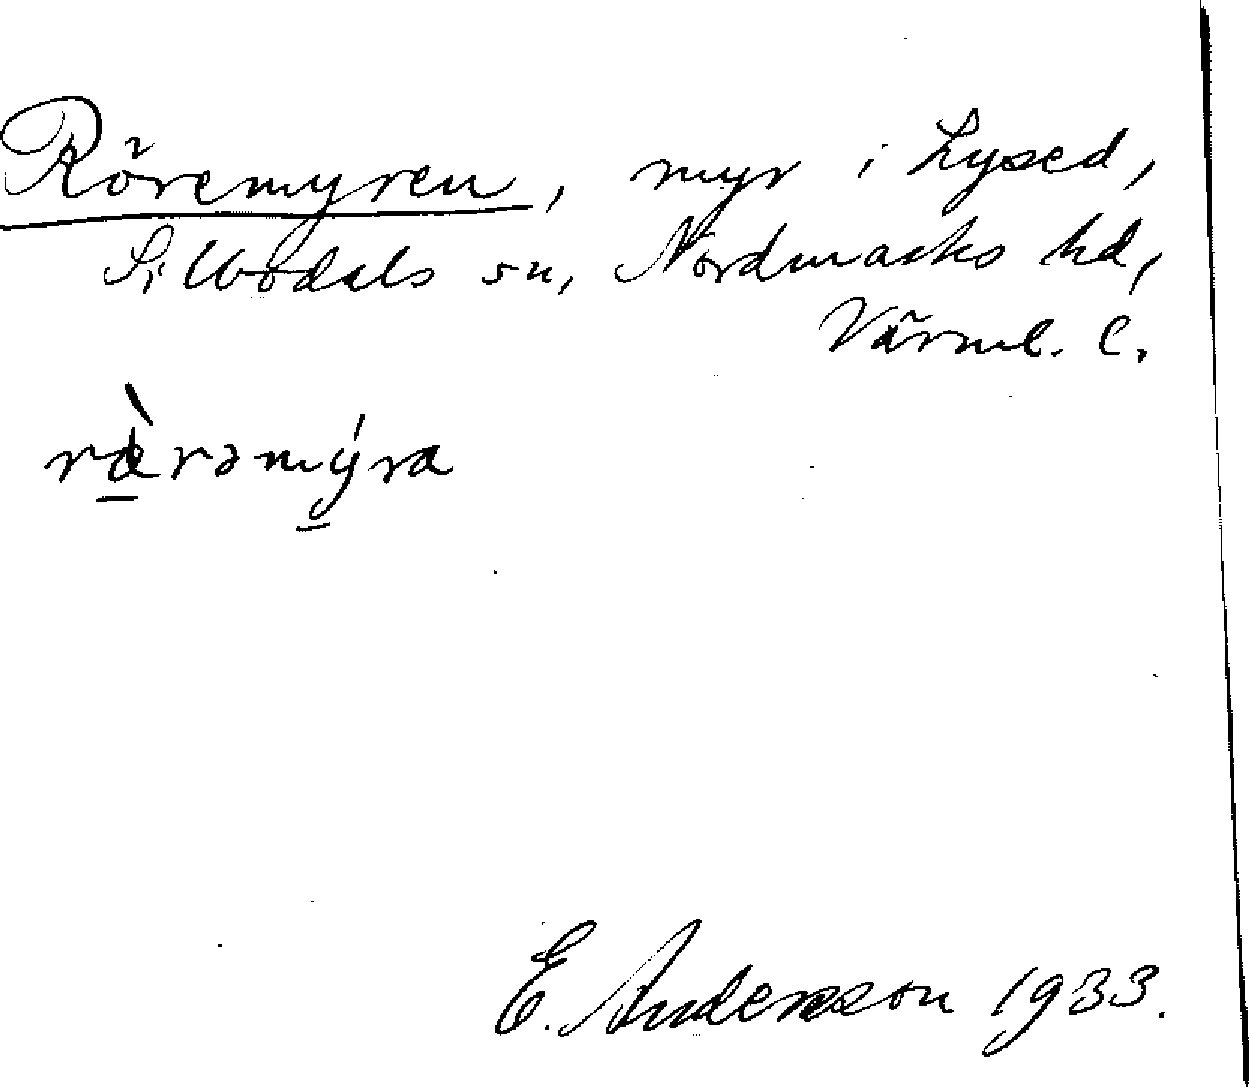 Röremyren, myr i Lysed,
Sillbodals sn, Nordmarks hd,
Värml. l.
rǿrəmýra
E. Andersson 1933.